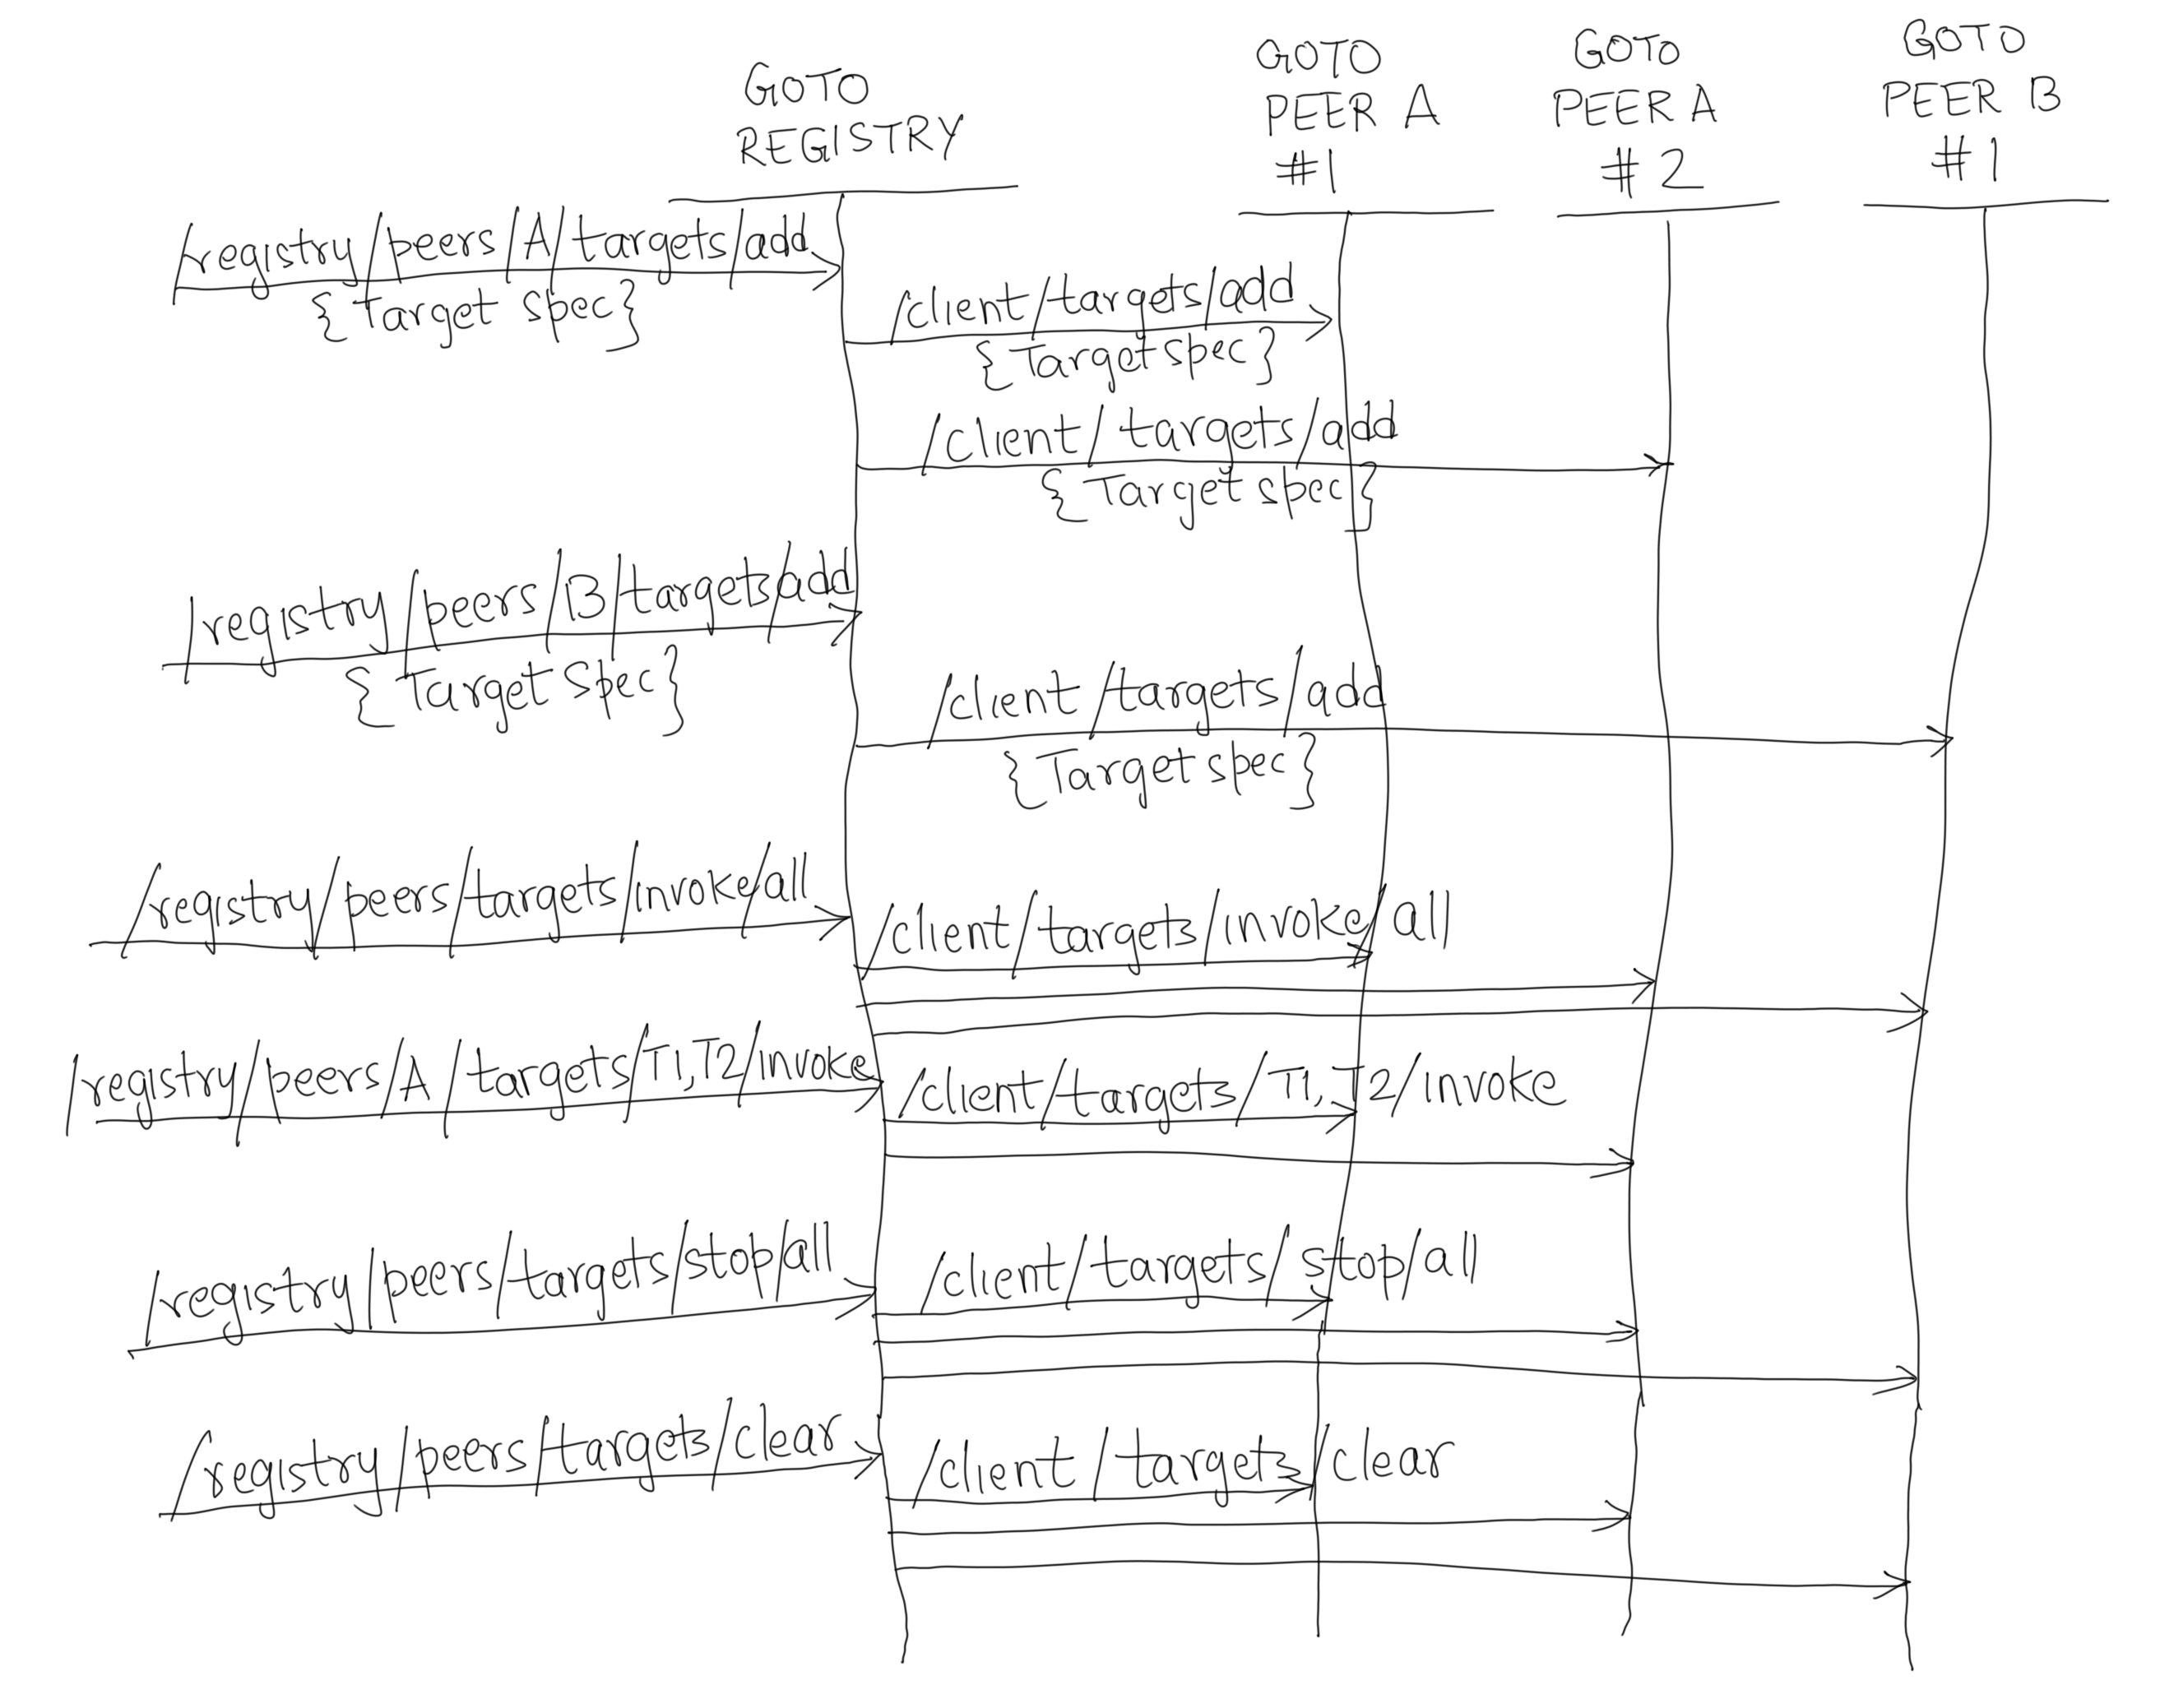 GOTO
REGISTRY
GOTO
PEER A
#1
GOTO
PEER A
#2
GOTO
PEER B
#1
/registry/peers/A/targets/add
{Target spec}
/client/targets/add
{Target spec}
/client/targets/add
{Target spec}
/registry/peers/B/targets/add
{Target spec}
/client/targets/add
{Target spec}
/registry/peers/targets/invoke/all
/client/targets/invoke/all
/registry/peers/A/targets/T1,T2/invoke
/client/targets/T1,T2/invoke
/registry/peers/targets/stop/all
/client/targets/stop/all
/registry/peers/targets/clear
/client/targets/clear